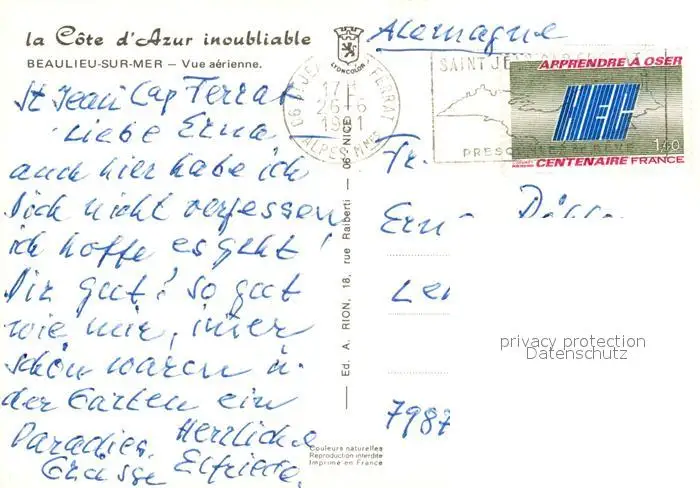 la Côte d'Azur inoubliable
BEAULIEU-SUR-MER — Vue aérienne.
LYONCOLOR
St Jean Cap Ferrat
Liebe Erna
auch hier habe ich
Dich nicht verfessen
ich hoffe es geht
Dir gut! so gut
wie mir, immer
schön warm u.
der Garten ein
Paradies. Herrliche
Grüsse Elfriede.
Ed. A. RION, 18, rue Raiberti — 06 NICE
Couleurs naturelles
Reproduction interdite
Imprimé en France
Alemagne
26-6
1981
ALPES-MMES
SAINT JEAN CAP FERRAT
APPRENDRE A OSER
HEC
1,40
CENTENAIRE FRANCE
Fr.
Erna
7987
privacy protection
Datenschutz